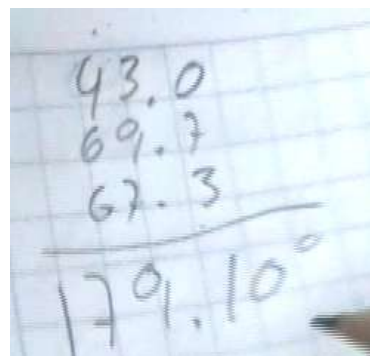 43.0
69.7
67.3
179.10°